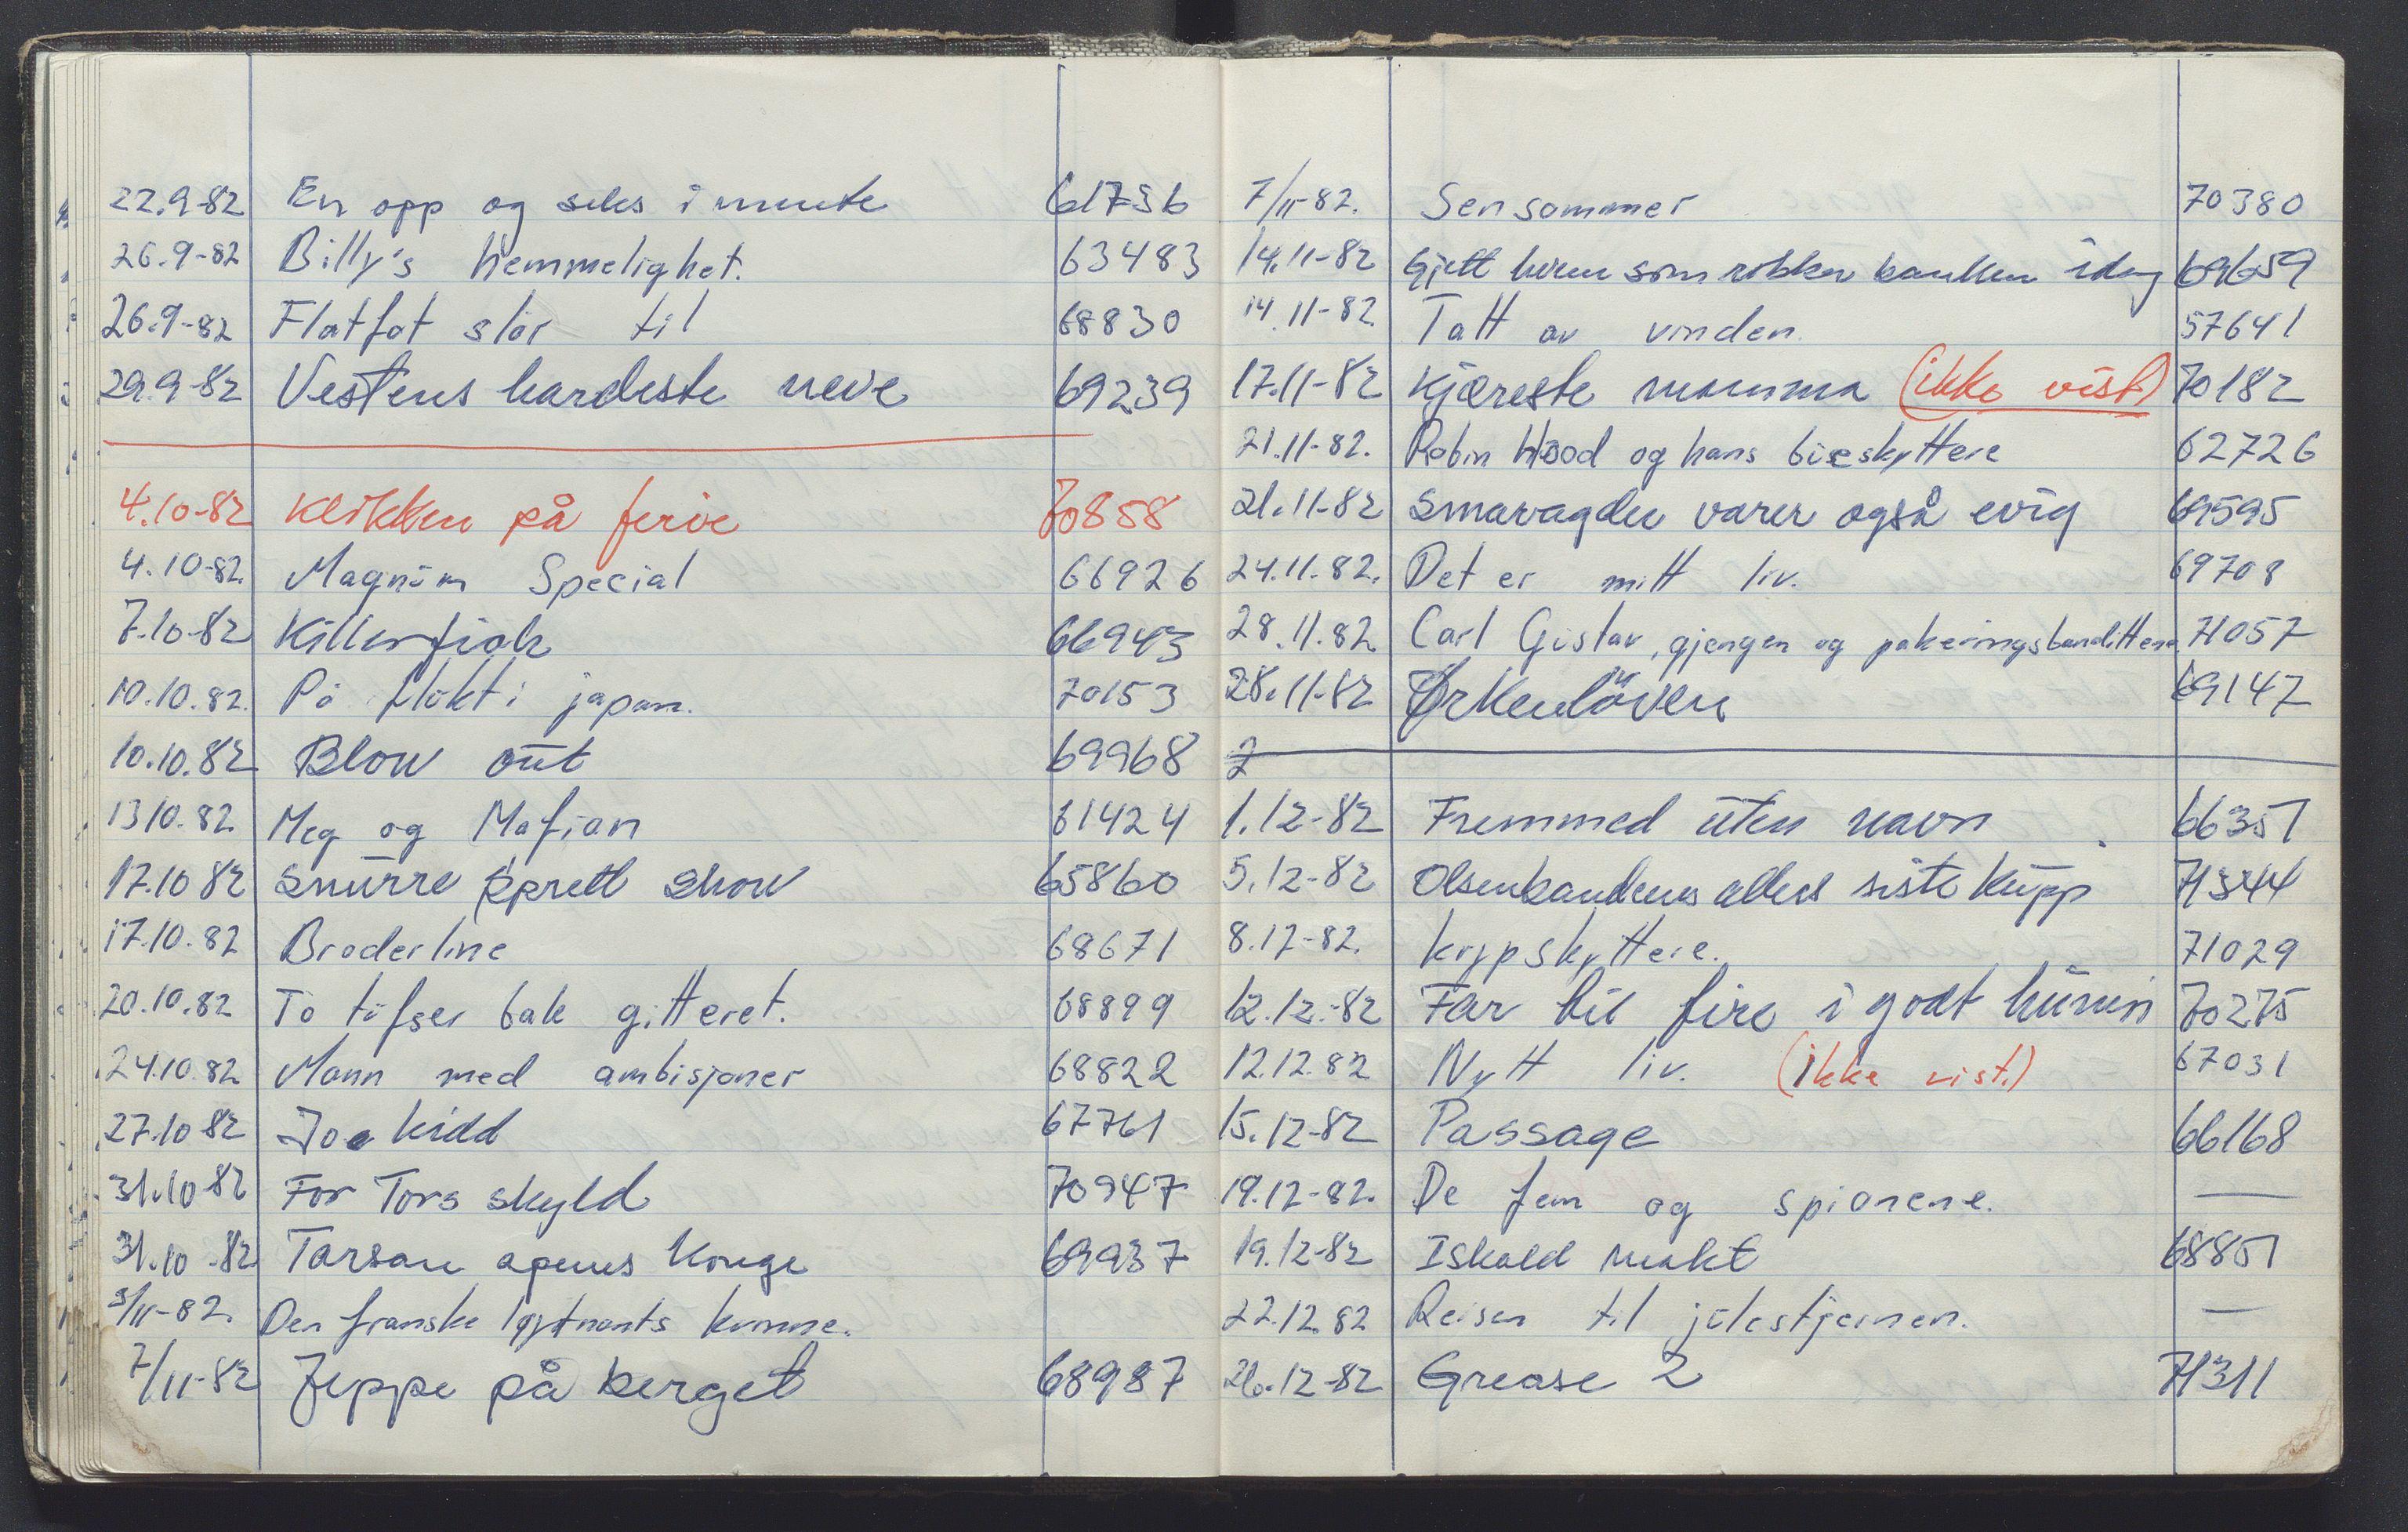 22.9-82 En opp og seks i mente 61736
26.9-82 Billy's hemmelighet. 63483
26.9-82 Flatfot slår til 68830
29.9-82 Vestens hardeste neve 69239
4.10-82 Klikken på ferie 70858
4.10-82 Magnum Special 66926
7.10-82 Killerfish 66943
10.10.82. På flukt i japan. 70153
10.10.82 Blow out 69968
13 10.82 Meg og Mafian 61424
17.10 82 Snurre Sprett show 65860
17.10.82 Broderline 68671
20.10.82 To tufser bak gitteret. 68899
24.10.82 Mann med ambisjoner 68822
27.10 82 Joe Kidd 67761
31.10 82 For Tors skyld 70947
31.10-82 Tarsan apenes konge 69937
3/11-82. Den franske løytnants kvinne.
7/11-82 Jeppe på berget 68987
7/11-82. Sensommer 70380
14.11-82 Gjett hvem som robber banken idag 69659
14.11-82. Tatt av vinden. 57641
17.11-82 Kjæreste mamma (ikke vist) 70182
21.11-82. Robin Hood og hans bueskyttere 62726
21.11-82 Smaragder varer også evig 69595
24.11.82. Det er mitt liv. 69708
28.11.82. Carl Gustav, gjengen og pakeringsbandittene 71057
28.11-82 Ørkenløven 69147
2
1.12-82 Fremmed uten navn 66351
5.12-82 Olsenbandens aller siste kupp 71344
8.12-82. krypskyttere. 71029
12.12.-82 Far til fire i godt humør 70275
12.12.82 Nytt liv. (ikke vist.) 67031
15.12-82 Passage 66168
19.12-82. De fem og spionene. —
19.12-82 Iskald makt 68851
22.12.82 Reisen til julestjernen. —
26.12-82 Grease 2 71311